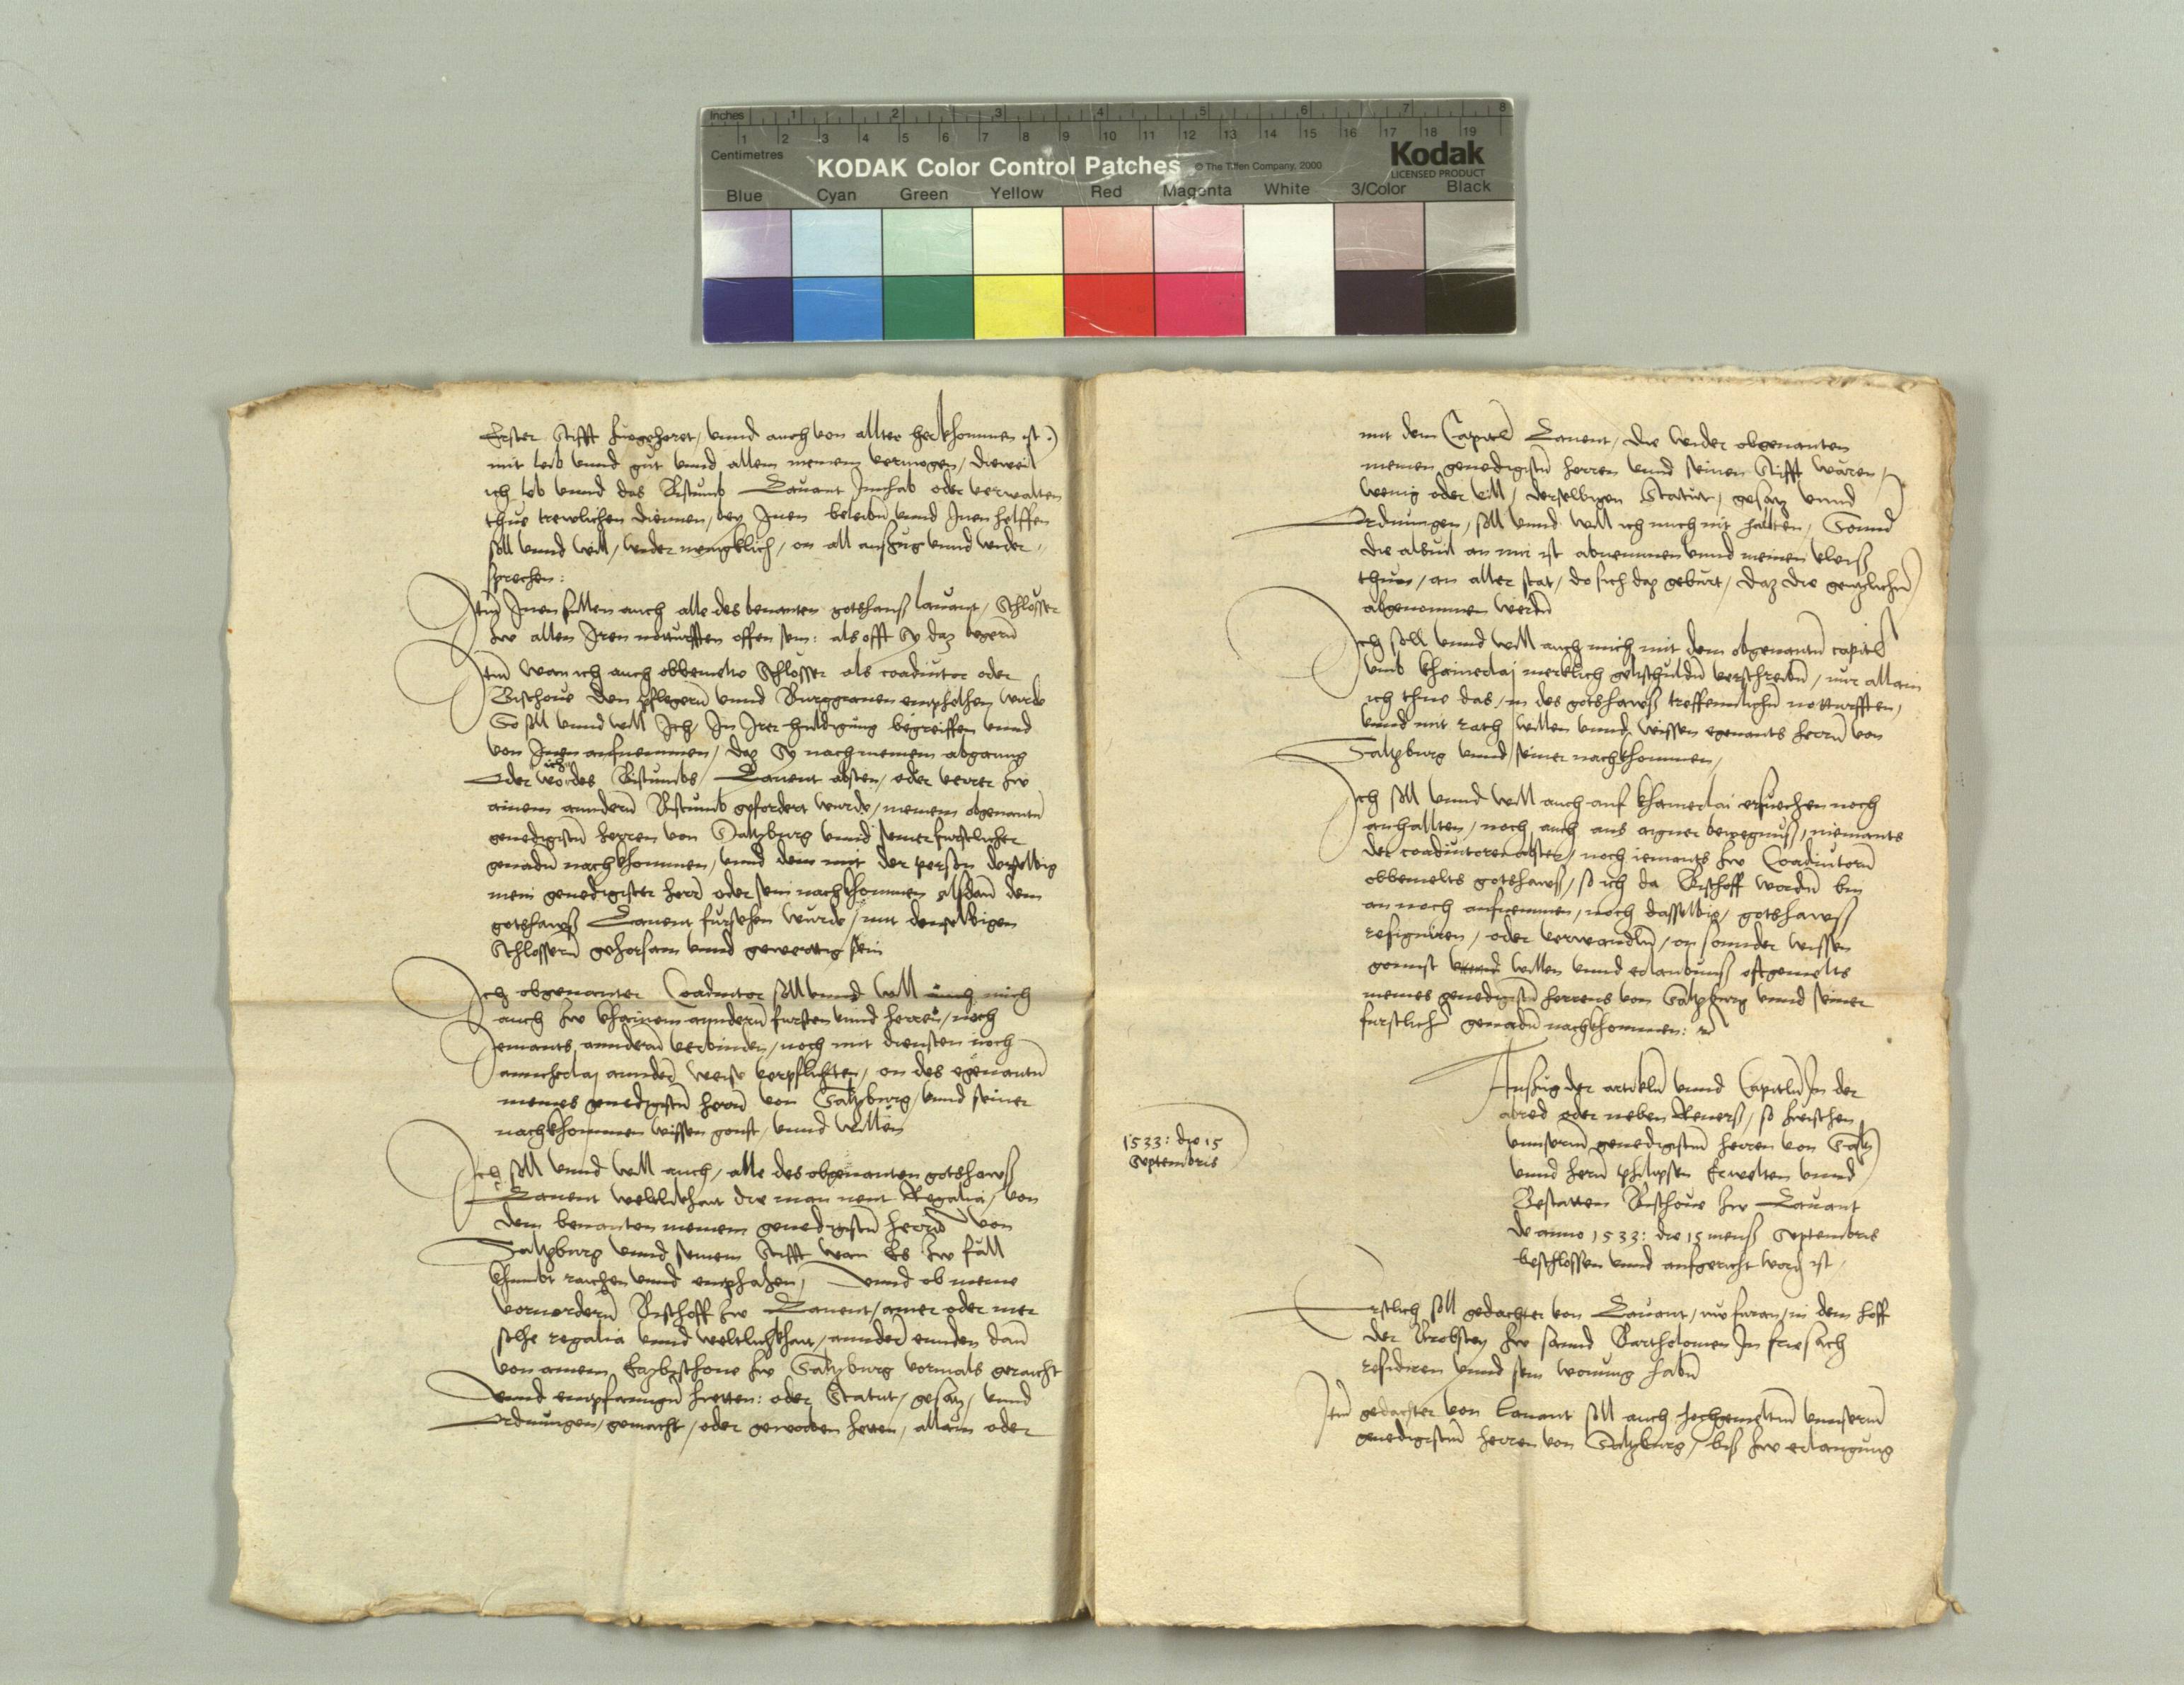 Inches 1 2 3 4 5 6 7 8
1 2 3 4 5 6 7 8 9 10 11 12 13 14 15 16 17 18 19
Centimetres
KODAK Color Control Patches © The Tiffen Company, 2000 Kodak
LICENSED PRODUCT
Blue Cyan Green Yellow Red Magenta White 3/Color Black
Erster Stifft zuegehoret / vnnd auch von allter herkhommen ist .)
mit leib vnnd gut vnnd allem meinem vermogen / dieweil
ich leb vnnd das Bistumb Lauant Innhab oder verwalten
thue trewlichen diennen / bey Inen beleibn vnnd Inen helffen
soll vnnd will / wider menigklich / on all auszug vnnd wider
sprechen :
Itm Inen sullen auch alle des benanten gotshauß lauant / Schlosser
zw allen Iren notturfften offen sein : als offt Sy daz begern
Itm wan ich auch obbemelte Schlosser als coadiutor oder
Bischoue den pflegern vnnd Burggrauen emphelhen wirde
So soll vnnd will Ich / In Irer huldigung begreiffen vnnd
von Inen aufnemmen / daz Sy nach meinem abganng
ich
Oder wo des Bistumbs / Lauent absten / oder verrer zw
ainem anndern Bistumb gefordert wurde / meinem obgenantn
genedigistn herren von Saltzburg vnnd seiner furstlicher
genadn nachkhommen / vnnd dem mit der person derselbig
mein genedigister herr oder sein nachkhommen alsdann dem
gotshawß Lauent fursehen wurde / mit denselbigen
Schlossern gehorsam vnnd gewerttig sein
Ich obgenanter Coadiutor soll vnnd will auch mich
auch zw khainem anndern fursten vnnd herren / noch
Iemants anndern verbinden / noch mit diensten noch
annicherlaj annder weise verpflichten / on des egenantn
meines genedigistn herrn von Saltzburg / vnnd seiner
nachkhommen wissen gonst / vnnd willen
Ich soll vnnd will auch / alle des obgenanten gotshawß
Lauent weltlichait die man nent Regalia / von
dem benanten meinem genedigistn herrn von
Saltzburg vnnd seinem Stifft wan Es zw fall
khumbt raichen vnnd emphahen / Vnnd ob meine
vorvordern Bischoff zw Lauent / ainer oder mer
solhe regalia vnnd weltlichkhait / annder ennden dan
von ainem Ertzbischoue zw Saltzburg vormals geraicht
Vnnd empfanngen hetten : oder Statut / gesatz / vnnd
Ordnungen / gemacht / oder geworben hetten / allain oder
mit dem Capitl Lauent / die wider obgenanten
meinen genedigistn herren vnnd seinen Stifft waren /
wenig oder vill / derselbigen Statut / gesatz vnnd
Ordnungen / soll vnnd will ich mich nit hallten / Sonnd
die alsvil an mir ist abnemmen vnnd meinen vleiß
thun / an aller stat / do sich daz geburt / daz die genntzlichn
abgenommen werdn
Ich soll vnnd will auch mich mit dem obgenantn capitl
vmb khainerlaj mercklich geltschuldn verschreibn / nur allain
ich thue das / in des gotshawß treffennlichn notturfften /
vnnd mit rath willen vnnd wissen egenants herrn von
Saltzburg vnnd seiner nachkhommen /
Ich soll vnnd will auch auf khainerlai ersuechen noch
anhallten / noch auch aus aigner bewegnuß / niemants
der coadiutoren absten / noch iemants zw Coadiutorn
obbemelts gotshawß / so ich da Bischoff wordn bin
an noch aufnemmen / noch dasselbig / gotshawß
resigniren / oder verwandln / on sonnder wissen
gonnst vnnd willen vnnd erlaubnuß offtgemelts
meines genedigistn herrens von Saltzburg vnnd seiner
furstlichr genadn nachkhommen :
Auszug der artickln vnnd Capitln In der
abred oder neben Reuerß / so zwischen
vnnserm genedigistn herren von Saltz
vnnd hern philipsen Erwelten vnnd
Bestatten Bischoue zw Lauant
de anno 1533 : die 15 menß Septembris
beschlossen vnnd aufgericht worn ist /
1533 : die 15
Septembris
Erstlich soll gedachter von Lauant / nw furan / in dem hoff
der Brobstey zw sannd Bartholomen In friesach
residiren vnnd sein wonung habn
Itm gedachter von Lauant soll auch hochgemeltm vnnserm
genedigistm herren von Saltzburg / biß zw erlangung